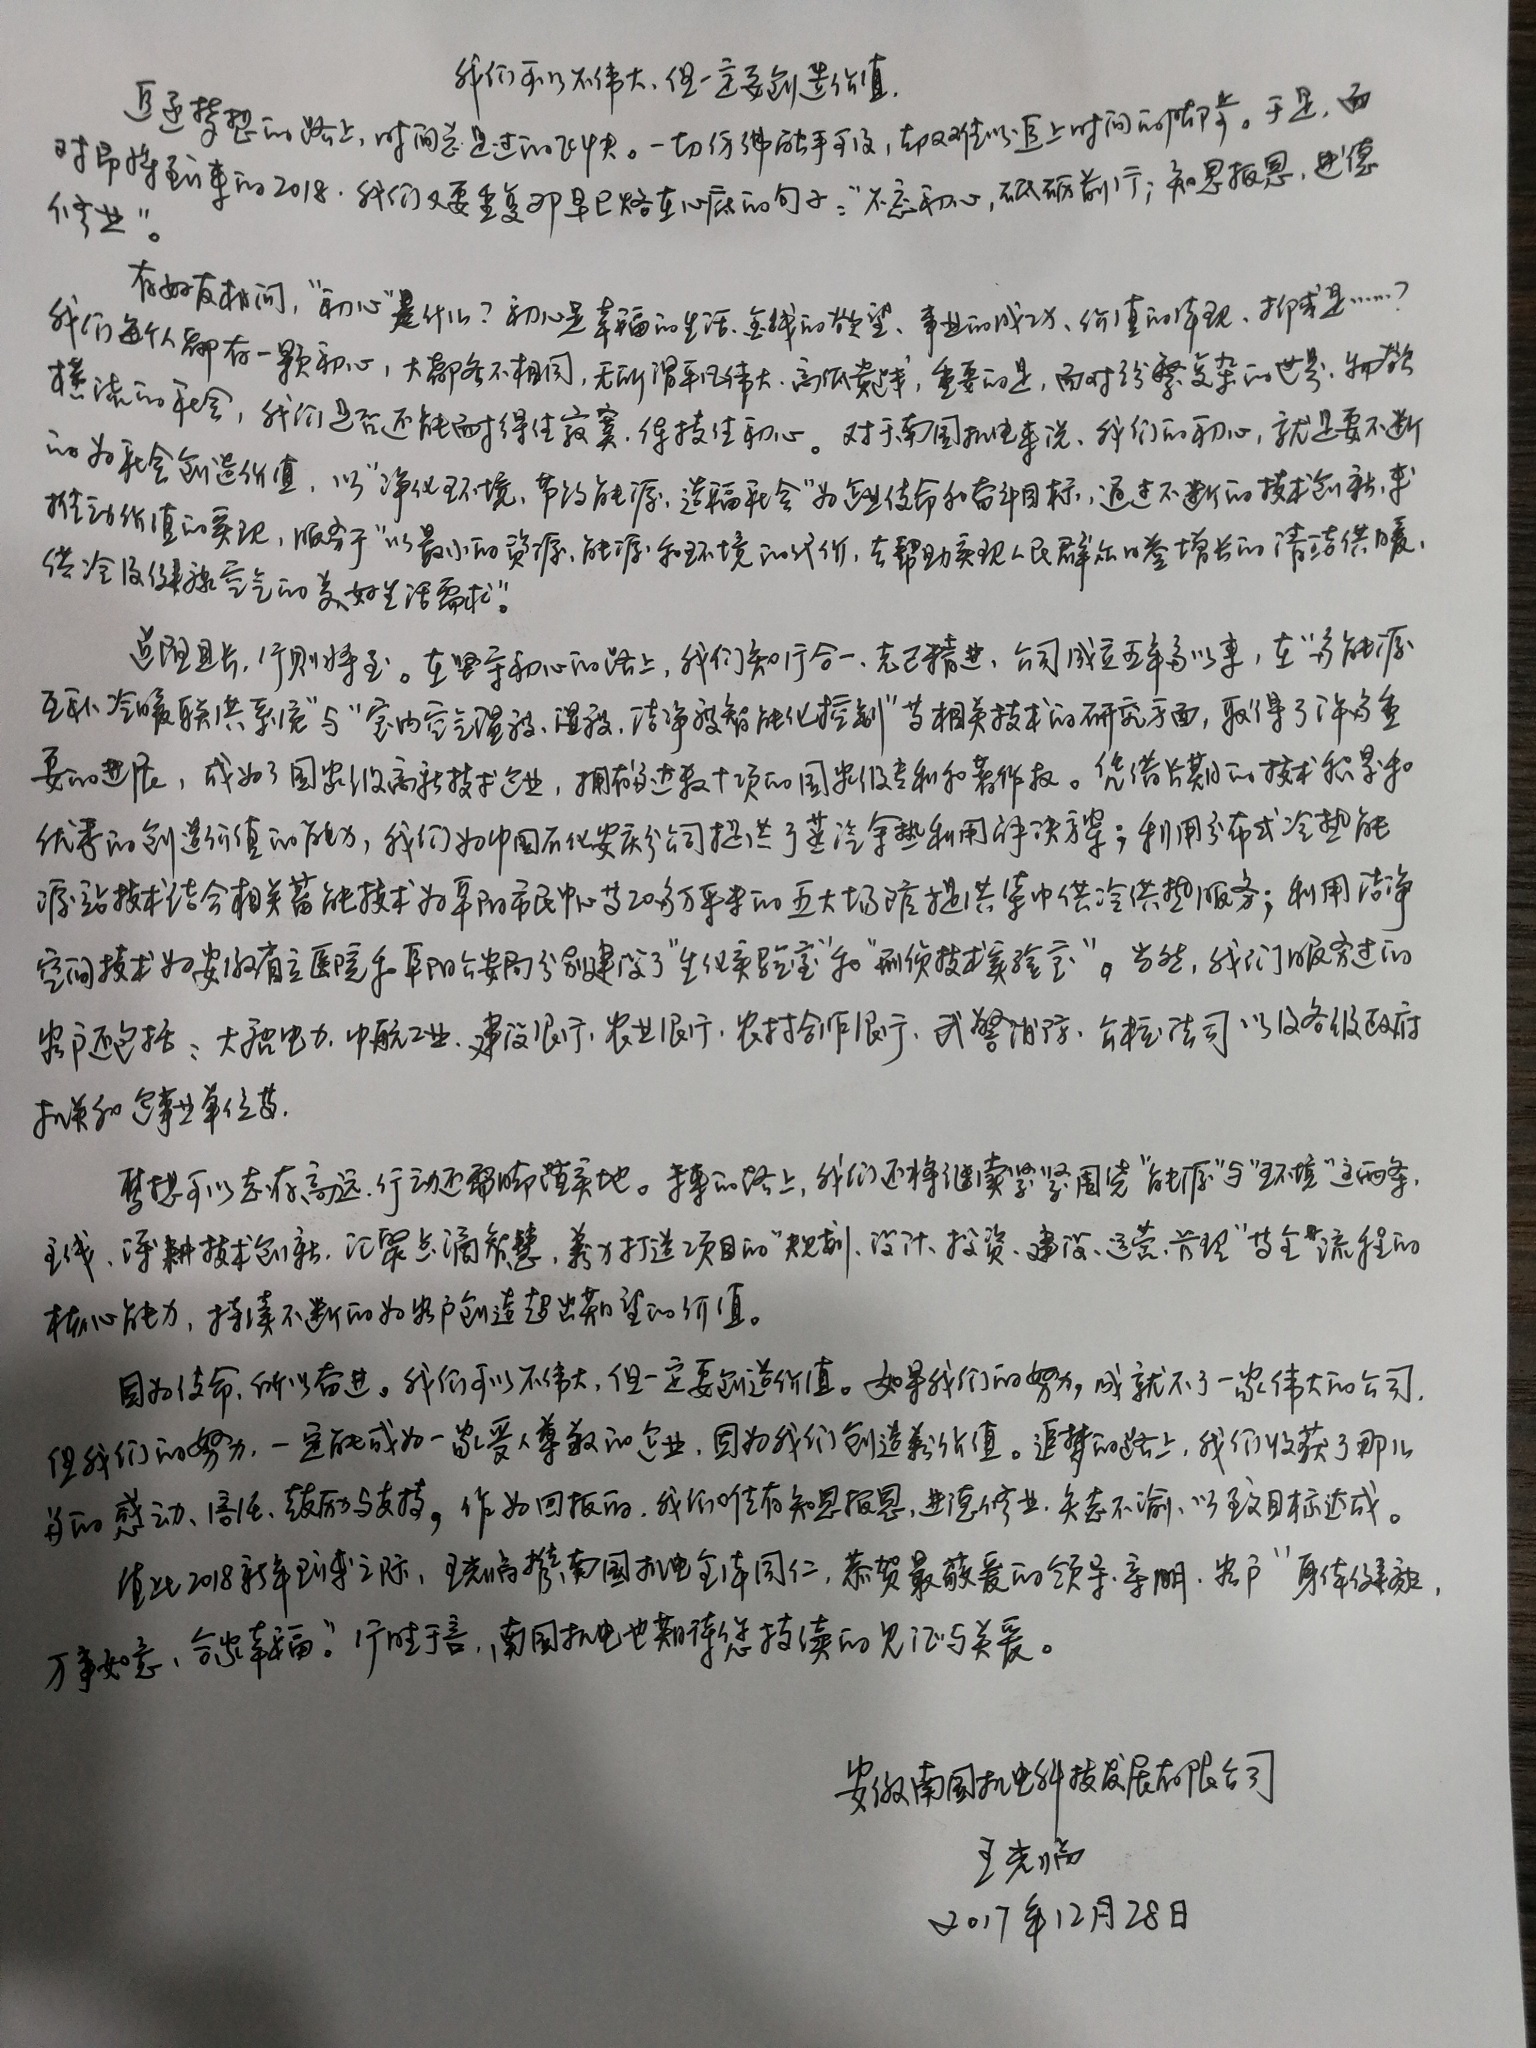 我们可以不伟大、但一定要创造价值.
追逐梦想的路上，时间总是过的飞快。一切仿佛触手可及，却又难以追上时间的脚步。于是，面
对即将到来的2018.我们又要重复那早已烙在心底的句子：“不忘初心，砥砺前行；知恩报恩，进德
修业”。
有好友相问，“初心”是什么？初心是幸福的生活、金钱的欲望、事业的成功、价值的体现、抑或是……？
我们每个人都有一颗初心，大都各不相同，无所谓平凡伟大、高低贵贱，重要的是，面对纷繁复杂的世界、物欲
横流的社会，我们是否还能耐得住寂寞、保持住初心。对于南国机电来说、我们的初心，就是要不断
的为社会创造价值，以“净化环境、节约能源、造福社会”为企业使命和奋斗目标，通过不断的技术创新，来
推动价值的实现，服务于“以最小的资源、能源和环境的代价，去帮助实现人民群众日益增长的清洁供暖、
供冷及健康空气的美好生活需求”。
道阻且长，行则将至。在坚守初心的路上，我们知行合一、克己精进、公司成立五年多以来，在“多能源
互补冷暖联供系统”与“室内空气温度、湿度、洁净度智能化控制”等相关技术的研究方面，取得了许多重
要的进展，成为了国家级高新技术企业，拥有多达数十项的国家级专利和著作权。凭借长期的技术积累和
优秀的创造价值的能力，我们为中国石化安庆分公司提供了蒸汽余热利用解决方案；利用分布式冷热能
源站技术结合相关蓄能技术为阜阳市民中心等20多万平米的五大场馆提供集中供冷供热服务；利用洁净
空间技术为安徽省立医院和阜阳公安局分别建设了“生化实验室”和“刑侦技术实验室”。当然，我们服务过的
客户还包括：大唐电力、中航工业、建设银行、农业银行、农村合作银行、武警消防、公检法司以及各级政府
机关和企事业单位等.
梦想可以志存高远、行动还需脚踏实地。未来的路上，我们还将继续紧紧围绕“能源”与“环境”这两条
主线、深耕技术创新、汇聚点滴智慧，着力打造项目的“规划、设计、投资、建设、运营、管理”等全流程的
核心能力，持续不断的为客户创造超出期望的价值。
因为使命、所以奋进。我们可以不伟大，但一定要创造价值。如果我们的努力，成就不了一家伟大的公司，
但我们的努力，一定能成为一家受人尊敬的企业，因为我们创造着价值。追梦的路上，我们收获了那么
多的感动、信任、鼓励与支持，作为回报的，我们唯有知恩报恩、进德修业、矢志不渝、以致目标达成。
值此2018新年到来之际，王光满携南国机电全体同仁，恭贺最敬爱的领导、亲朋、客户“身体健康，
万事如意、合家幸福”。行胜于言，南国机电也期待您持续的见证与关爱。
安徽南国机电科技发展有限公司
王光满
2017年12月28日